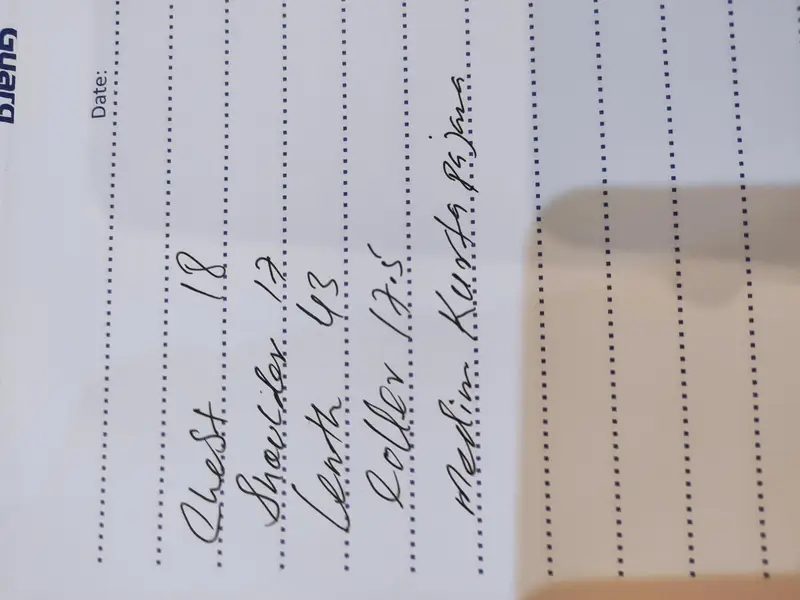 Guard
Date:
Chest 18
Shoulder 17
Lenth 43
Coller 17.5
Medium Kurta pajama